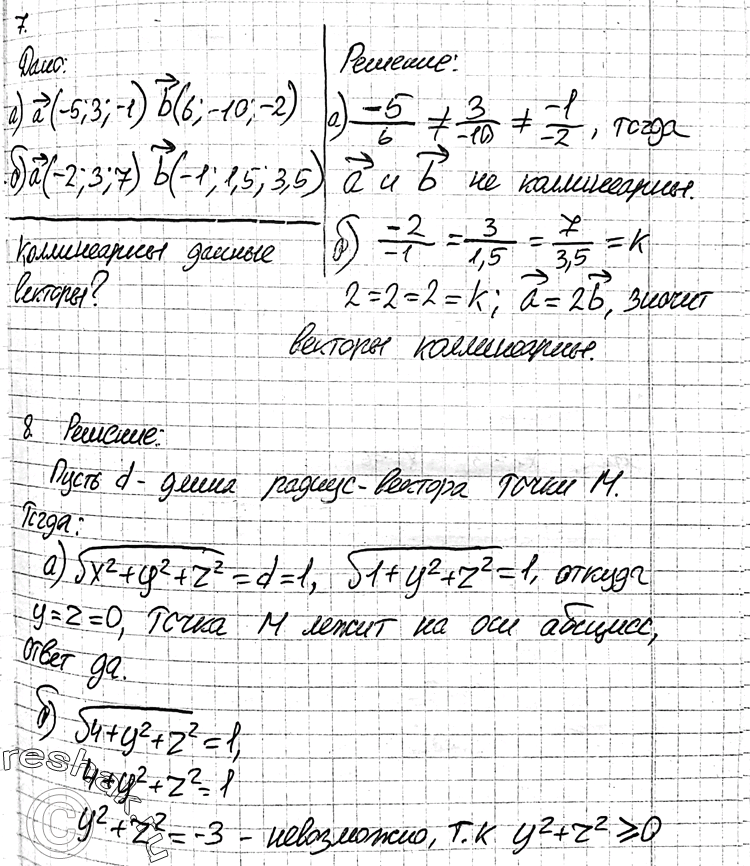 7.
Дано:
а) a⃗(-5; 3; -1) b⃗(6; -10; -2)
б) a⃗(-2; 3; 7) b⃗(-1; 1,5; 3,5)
Коллинеарны данные
векторы?
Решение:
а) -5/6 ≠ 3/-10 ≠ -1/-2, тогда
a⃗ и b⃗ не коллинеарны.
б) -2/-1 = 3/1,5 = 7/3,5 = k
2=2=2=k; a⃗ = 2b⃗, значит
векторы коллинеарны.
8. Решение:
Пусть d - длина радиус-вектора точки М.
Тогда:
а) √(x²+y²+z²) = d = 1, √(1+y²+z²) = 1, откуда
y=z=0, точка М лежит на оси абсцисс,
ответ да.
б) √(4+y²+z²) = 1,
4+y²+z² = 1
y²+z² = -3 - невозможно, т.к y²+z² ≥ 0
reshak.ru
©